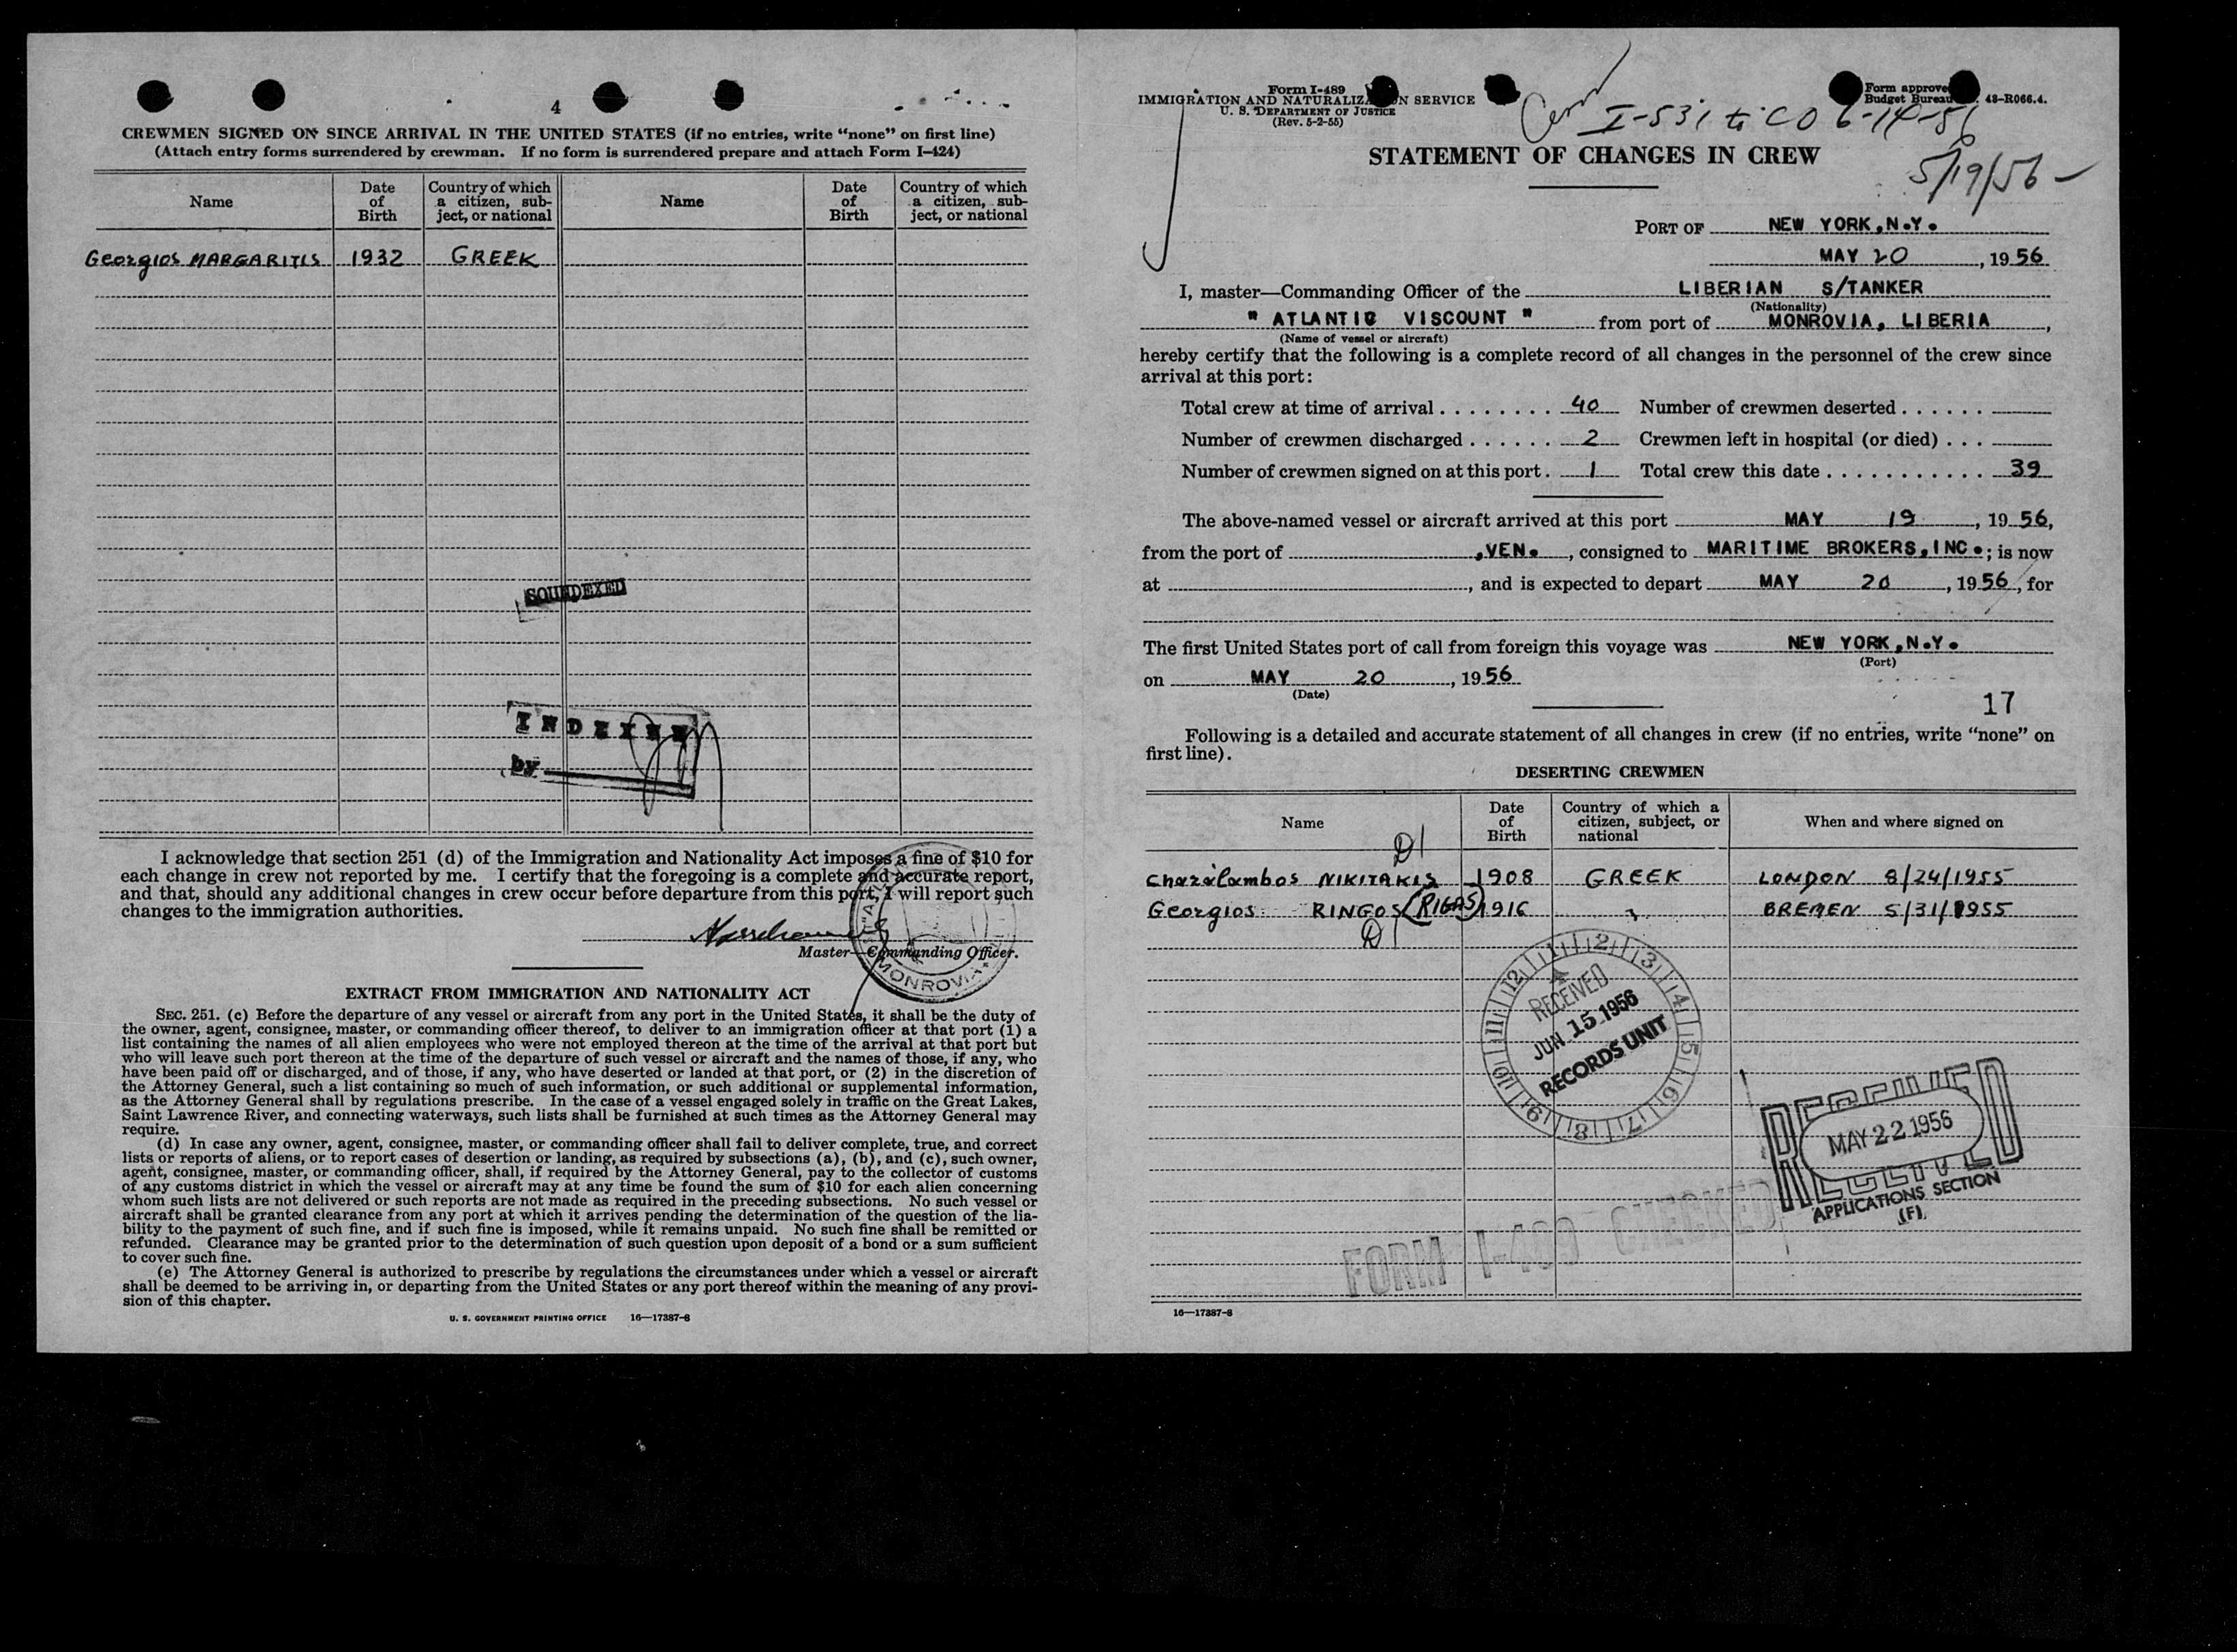 4
CREWMEN SIGNED ON SINCE ARRIVAL IN THE UNITED STATES (if no entries, write “none” on first line)
(Attach entry forms surrendered by crewman. If no form is surrendered prepare and attach Form I–424)
Name Date of Birth Country of which a citizen, subject, or national Name Date of Birth Country of which a citizen, subject, or national
Georgios MARGARITIS 1932 GREEK
SOUNDEXED
INDEXED
by
I acknowledge that section 251 (d) of the Immigration and Nationality Act imposes a fine of $10 for
each change in crew not reported by me. I certify that the foregoing is a complete and accurate report,
and that, should any additional changes in crew occur before departure from this port, I will report such
changes to the immigration authorities.
Master—Commanding Officer.
MONROVIA
EXTRACT FROM IMMIGRATION AND NATIONALITY ACT
SEC. 251. (c) Before the departure of any vessel or aircraft from any port in the United States, it shall be the duty of
the owner, agent, consignee, master, or commanding officer thereof, to deliver to an immigration officer at that port (1) a
list containing the names of all alien employees who were not employed thereon at the time of the arrival at that port but
who will leave such port thereon at the time of the departure of such vessel or aircraft and the names of those, if any, who
have been paid off or discharged, and of those, if any, who have deserted or landed at that port, or (2) in the discretion of
the Attorney General, such a list containing so much of such information, or such additional or supplemental information,
as the Attorney General shall by regulations prescribe. In the case of a vessel engaged solely in traffic on the Great Lakes,
Saint Lawrence River, and connecting waterways, such lists shall be furnished at such times as the Attorney General may
require.
(d) In case any owner, agent, consignee, master, or commanding officer shall fail to deliver complete, true, and correct
lists or reports of aliens, or to report cases of desertion or landing, as required by subsections (a), (b), and (c), such owner,
agent, consignee, master, or commanding officer, shall, if required by the Attorney General, pay to the collector of customs
of any customs district in which the vessel or aircraft may at any time be found the sum of $10 for each alien concerning
whom such lists are not delivered or such reports are not made as required in the preceding subsections. No such vessel or
aircraft shall be granted clearance from any port at which it arrives pending the determination of the question of the lia-
bility to the payment of such fine, and if such fine is imposed, while it remains unpaid. No such fine shall be remitted or
refunded. Clearance may be granted prior to the determination of such question upon deposit of a bond or a sum sufficient
to cover such fine.
(e) The Attorney General is authorized to prescribe by regulations the circumstances under which a vessel or aircraft
shall be deemed to be arriving in, or departing from the United States or any port thereof within the meaning of any provi-
sion of this chapter.
U. S. GOVERNMENT PRINTING OFFICE 16—17387-8
Form I-489
IMMIGRATION AND NATURALIZATION SERVICE
U. S. DEPARTMENT OF JUSTICE
(Rev. 5-2-55)
Form approve
Budget Bureau 43-R066.4.
I-531 to CO 6-14-56
5/19/56
STATEMENT OF CHANGES IN CREW
PORT OF NEW YORK, N.Y.
MAY 20, 1956
I, master—Commanding Officer of the LIBERIAN S/TANKER
(Nationality)
" ATLANTIC VISCOUNT " from port of MONROVIA, LIBERIA,
(Name of vessel or aircraft)
hereby certify that the following is a complete record of all changes in the personnel of the crew since
arrival at this port:
Total crew at time of arrival ........ 40 Number of crewmen deserted ......
Number of crewmen discharged ...... 2 Crewmen left in hospital (or died) ...
Number of crewmen signed on at this port. 1 Total crew this date ........... 39
The above-named vessel or aircraft arrived at this port MAY 19, 1956,
from the port of ,VEN., consigned to MARITIME BROKERS, INC.; is now
at , and is expected to depart MAY 20, 1956, for
The first United States port of call from foreign this voyage was NEW YORK, N.Y.
(Port)
on MAY 20, 1956
(Date)
17
Following is a detailed and accurate statement of all changes in crew (if no entries, write “none” on
first line).
DESERTING CREWMEN
Name Date of Birth Country of which a citizen, subject, or national When and where signed on
D1
Charalambos NIKITAKIS 1908 GREEK LONDON 8/24/1955
Georgios RINGOS (RIGAS) 1916 " BREMEN 5/31/1955
D1
RECEIVED
JUN 15 1956
RECORDS UNIT
1 2 3 4 5 6 7 8 9 10 11 12
RECEIVED
MAY 22 1956
APPLICATIONS SECTION
(F)
FORM I-489 CHECKED
16—17387-8